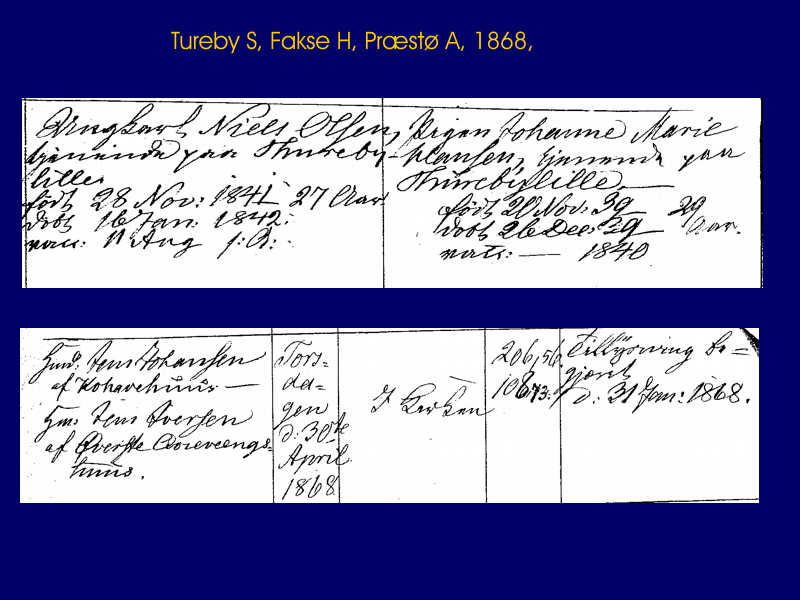 Tureby S, Fakse H, Præstø A, 1868,
Ungkarl Niels Olsen,
tjenende paa Thureby-
lille.
født 28 Nov: 1841 27 Aar
døbt 16 Jan: 1842.
vacc: 11 Aug
Pigen Johanne Marie
Hansen, tjenende paa
Thurebylille
født 20 Nov: 39 29
døbt 26 Dec: 39 Aar.
vacc: — 1840
Jens Johansen
af
Jens Iversen
af
huus.
Tors-
da-
gen
d: 30te
April
1868
I Kirken
206, 56
108, 73.
Tillysning be=
gjært
d: 31 Jan: 1868.